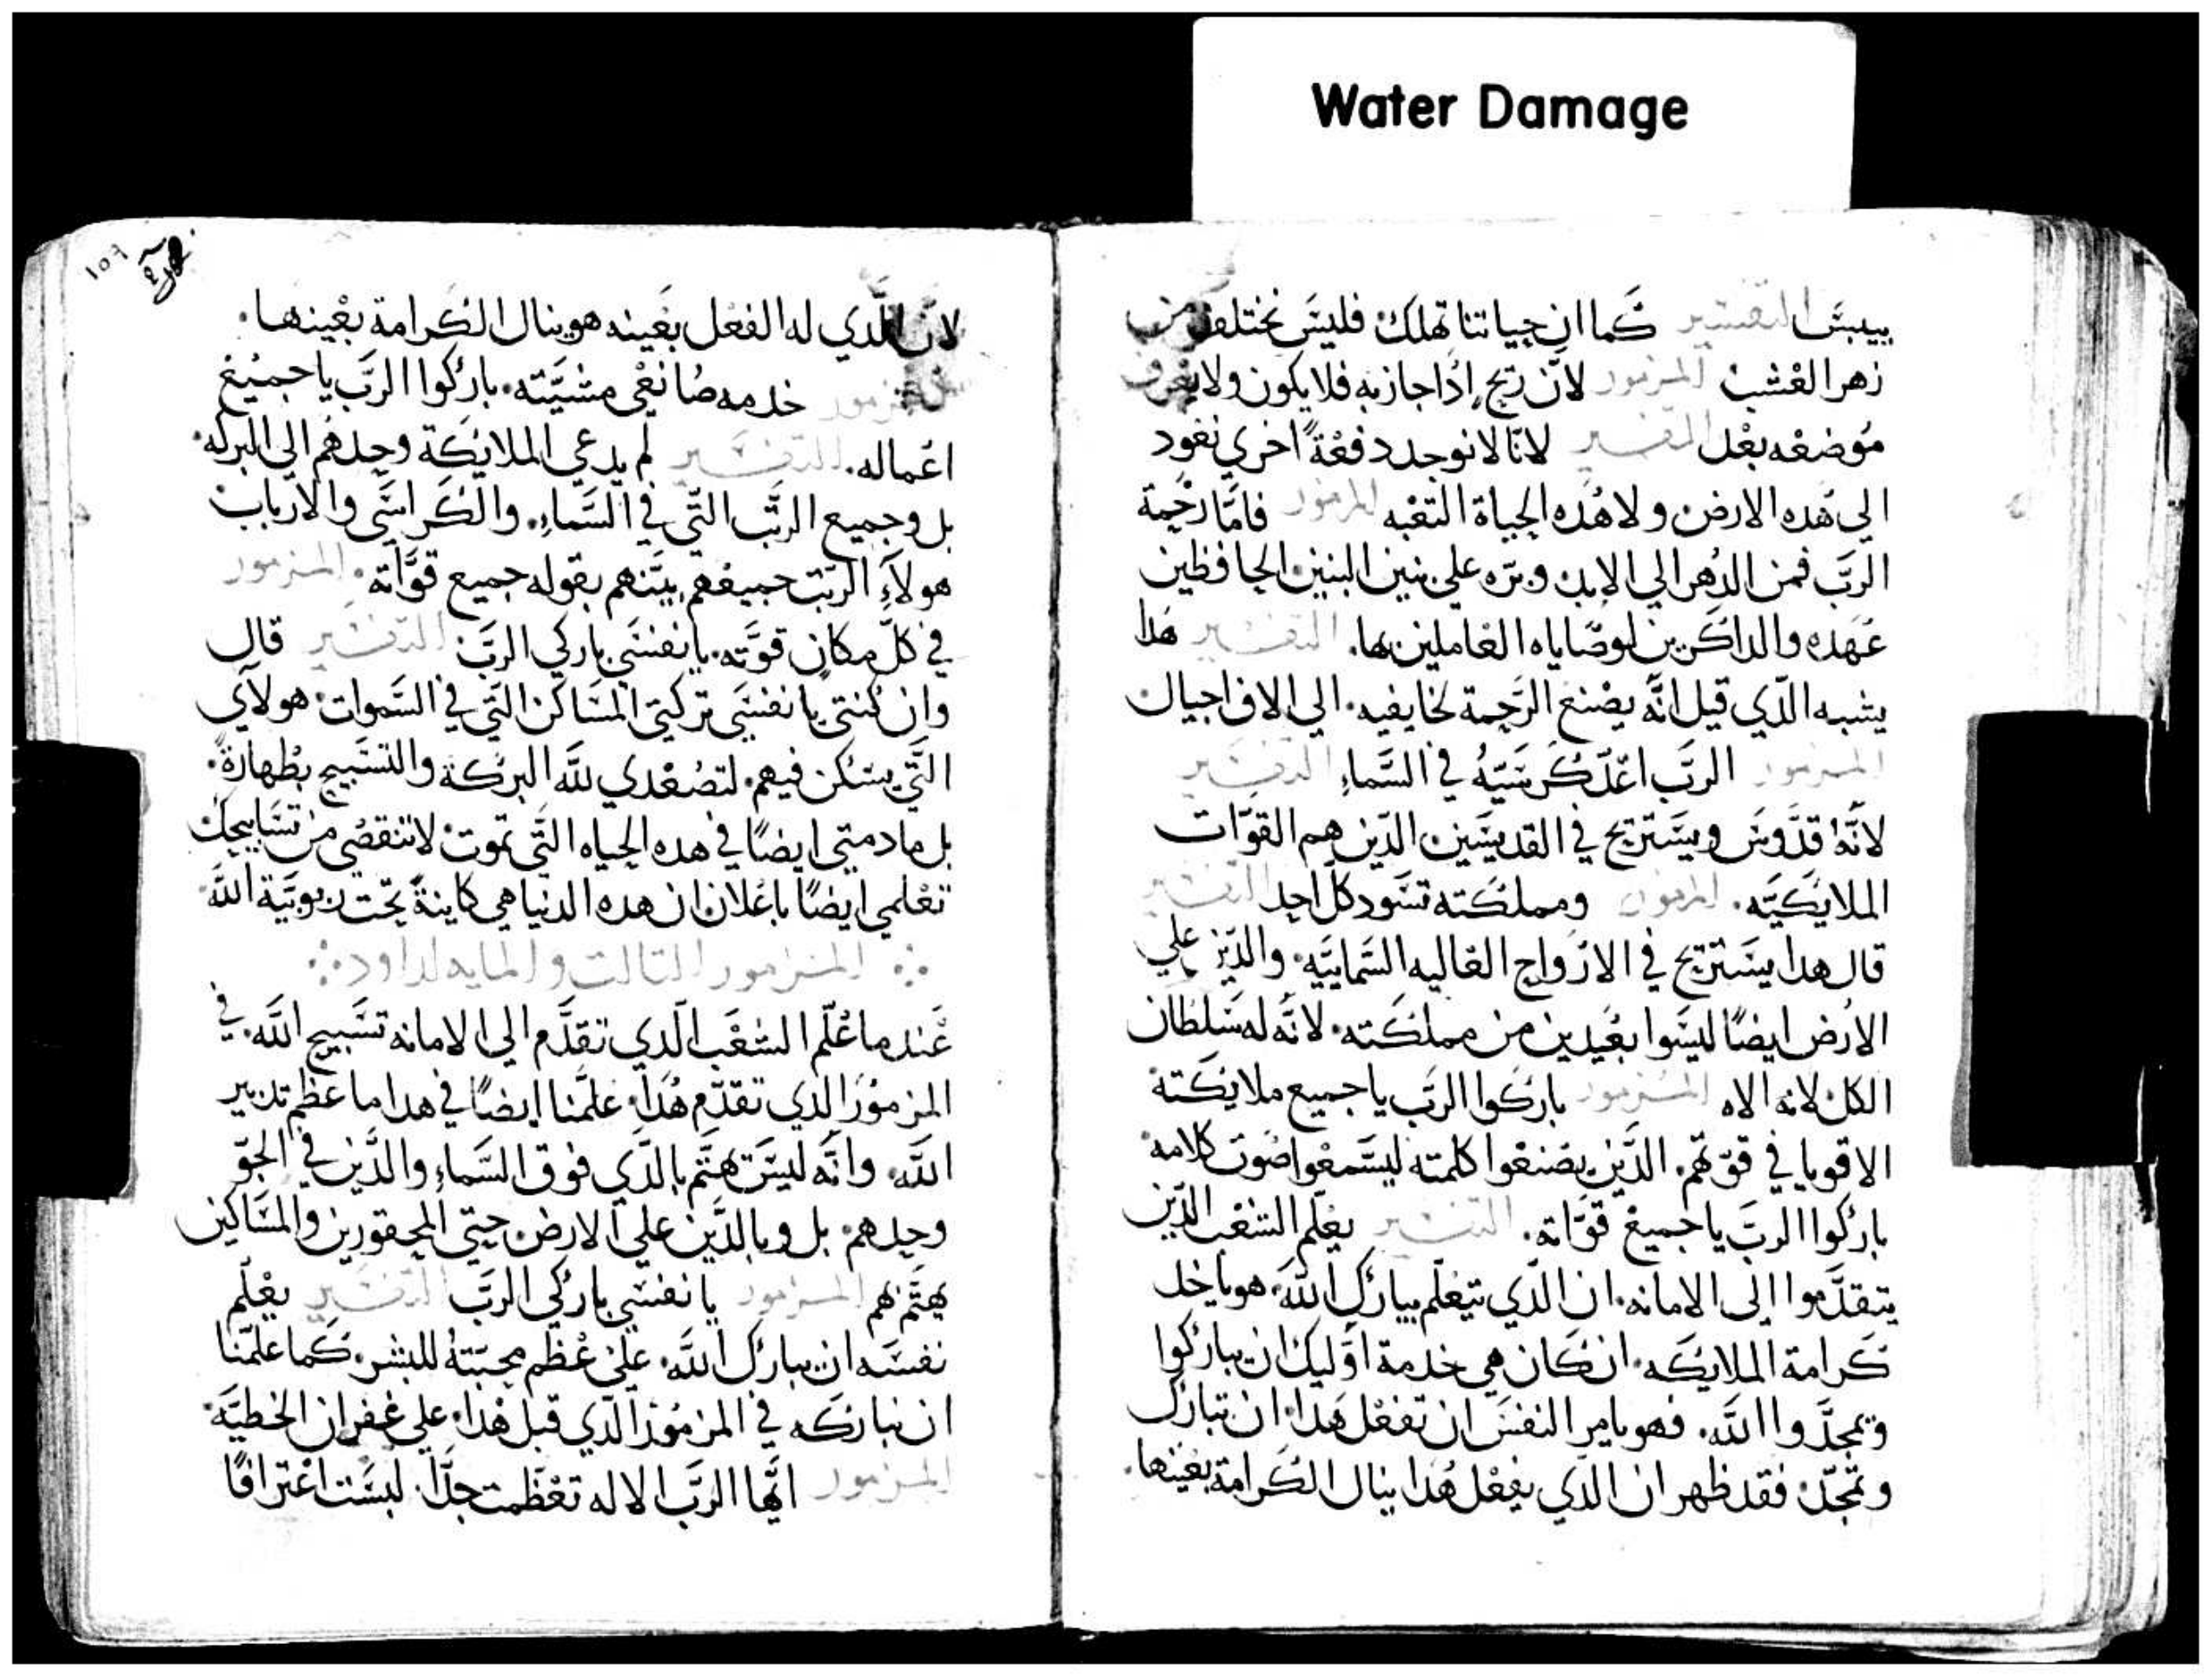 Water Damage
ييبس التفسير كما ان حياتنا تهلك فليس تختلف من
زهر العشب المزمور لانّ ريح اذا جاز به فلا يكون ولا يعرف
موضعه بعد التفسير لانّا لا نوجد دفعةً اخري نعود
الي هده الارض ولا هده الحياة التعبه المزمور فامّا رحمة
الربّ فمن الدهر الي الابد وبرّه علي بنين البنين الحافظين
عهده والداكرين لوصاياه العاملين بها. التفسير هدا
يشبه الدّي قيل انّه يصنع الرّحمة لخايفيه. الي الاف اجيال
المزمور الربّ اعدّ كرسيّه في السّماء التفسير
لانّه قدّوس ويستريح في القديسين الدّين هم القوّات
الملايكيّه. المزمور ومملكته تسود كلّ احد التفسير
قال هدا يستريح في الارواح العاليه السّماييّه. والدّين علي
الارض ايضًا ليسوا بعيدين من مملكته. لانّه له سلطان
الكل لانه الاه المزمور باركوا الربّ يا جميع ملايكته
الاقويا في قوّتهم. الدّين يصنعوا كلمته ليسمعوا صوت كلامه
باركوا الربّ يا جميع قوّاته. التفسير يعلّم الشعب الدّين
يتقدّموا الي الامانه. ان الدّي يتعلّم يبارك اللّه. هو ياخد
كرامة الملايكه. ان كان هي خدمة اوّليك ان يباركوا
ويمجدّوا اللّه. فهو يامر النفس ان تفعل هدا. ان تبارك
وتمجّد. فقد ظهر ان الدّي يفعل هدا ينال الكرامة بعينها.
١٥٦
لانّ الّدي له الفعل بعينه هو ينال الكرامة بعينها.
المزمور خدمه صانعي مشيّته. باركوا الربّ يا جميع
اعماله. التفسير لم يدعي الملايكة وحدهم الي البركه.
بل وجميع الرتّب التّي في السّماء. والكراسي والارباب
هولاء الرتب جميعهم بيّنهم بقوله جميع قوّاته. المزمور
في كلّ مكان قوّته. يا نفسي باركي الربّ التفسير قال
وان كنتي يا نفسي تركتي المساكن التّي في السّموات. هولاي
التّي يسكن فيهم. لتصعدي للّه البركة والتسبيح بطهارة.
بل ما دمتي ايضًا في هده الحياه التّي تموت لا تنقصي من تسابيحك
تعلمي ايضًا باعلان ان هده الدنيا هي كاينةً تحت ربوبيّة اللّه
المزمور التالت والمايه لداود
عندما علّم الشعب الّدي تقدّم الي الامانه تسبيح اللّه. في
المزمور الدي تقدّم هدا. علّمنا ايضًا في هدا ما عظم تدبير
اللّه. وانّه ليس تهتّم بالدّي فوق السّماء والدّين في الجوّ
وحدهم. بل وبالدّين علي الارض حيتي المحقورين والمساكين
يهتّم بهم المزمور يا نفسي باركي الربّ التفسير يعلّم
نفسه ان يبارك اللّه. علي عظم محبّته للبشر. كما علّمنا
ان نباركه في المزمور الّدي قبل هدا. علي غفران الخطيّه.
المزمور ايّها الربّ الاله تعظّمت جدًّا. لبست اعترافًا